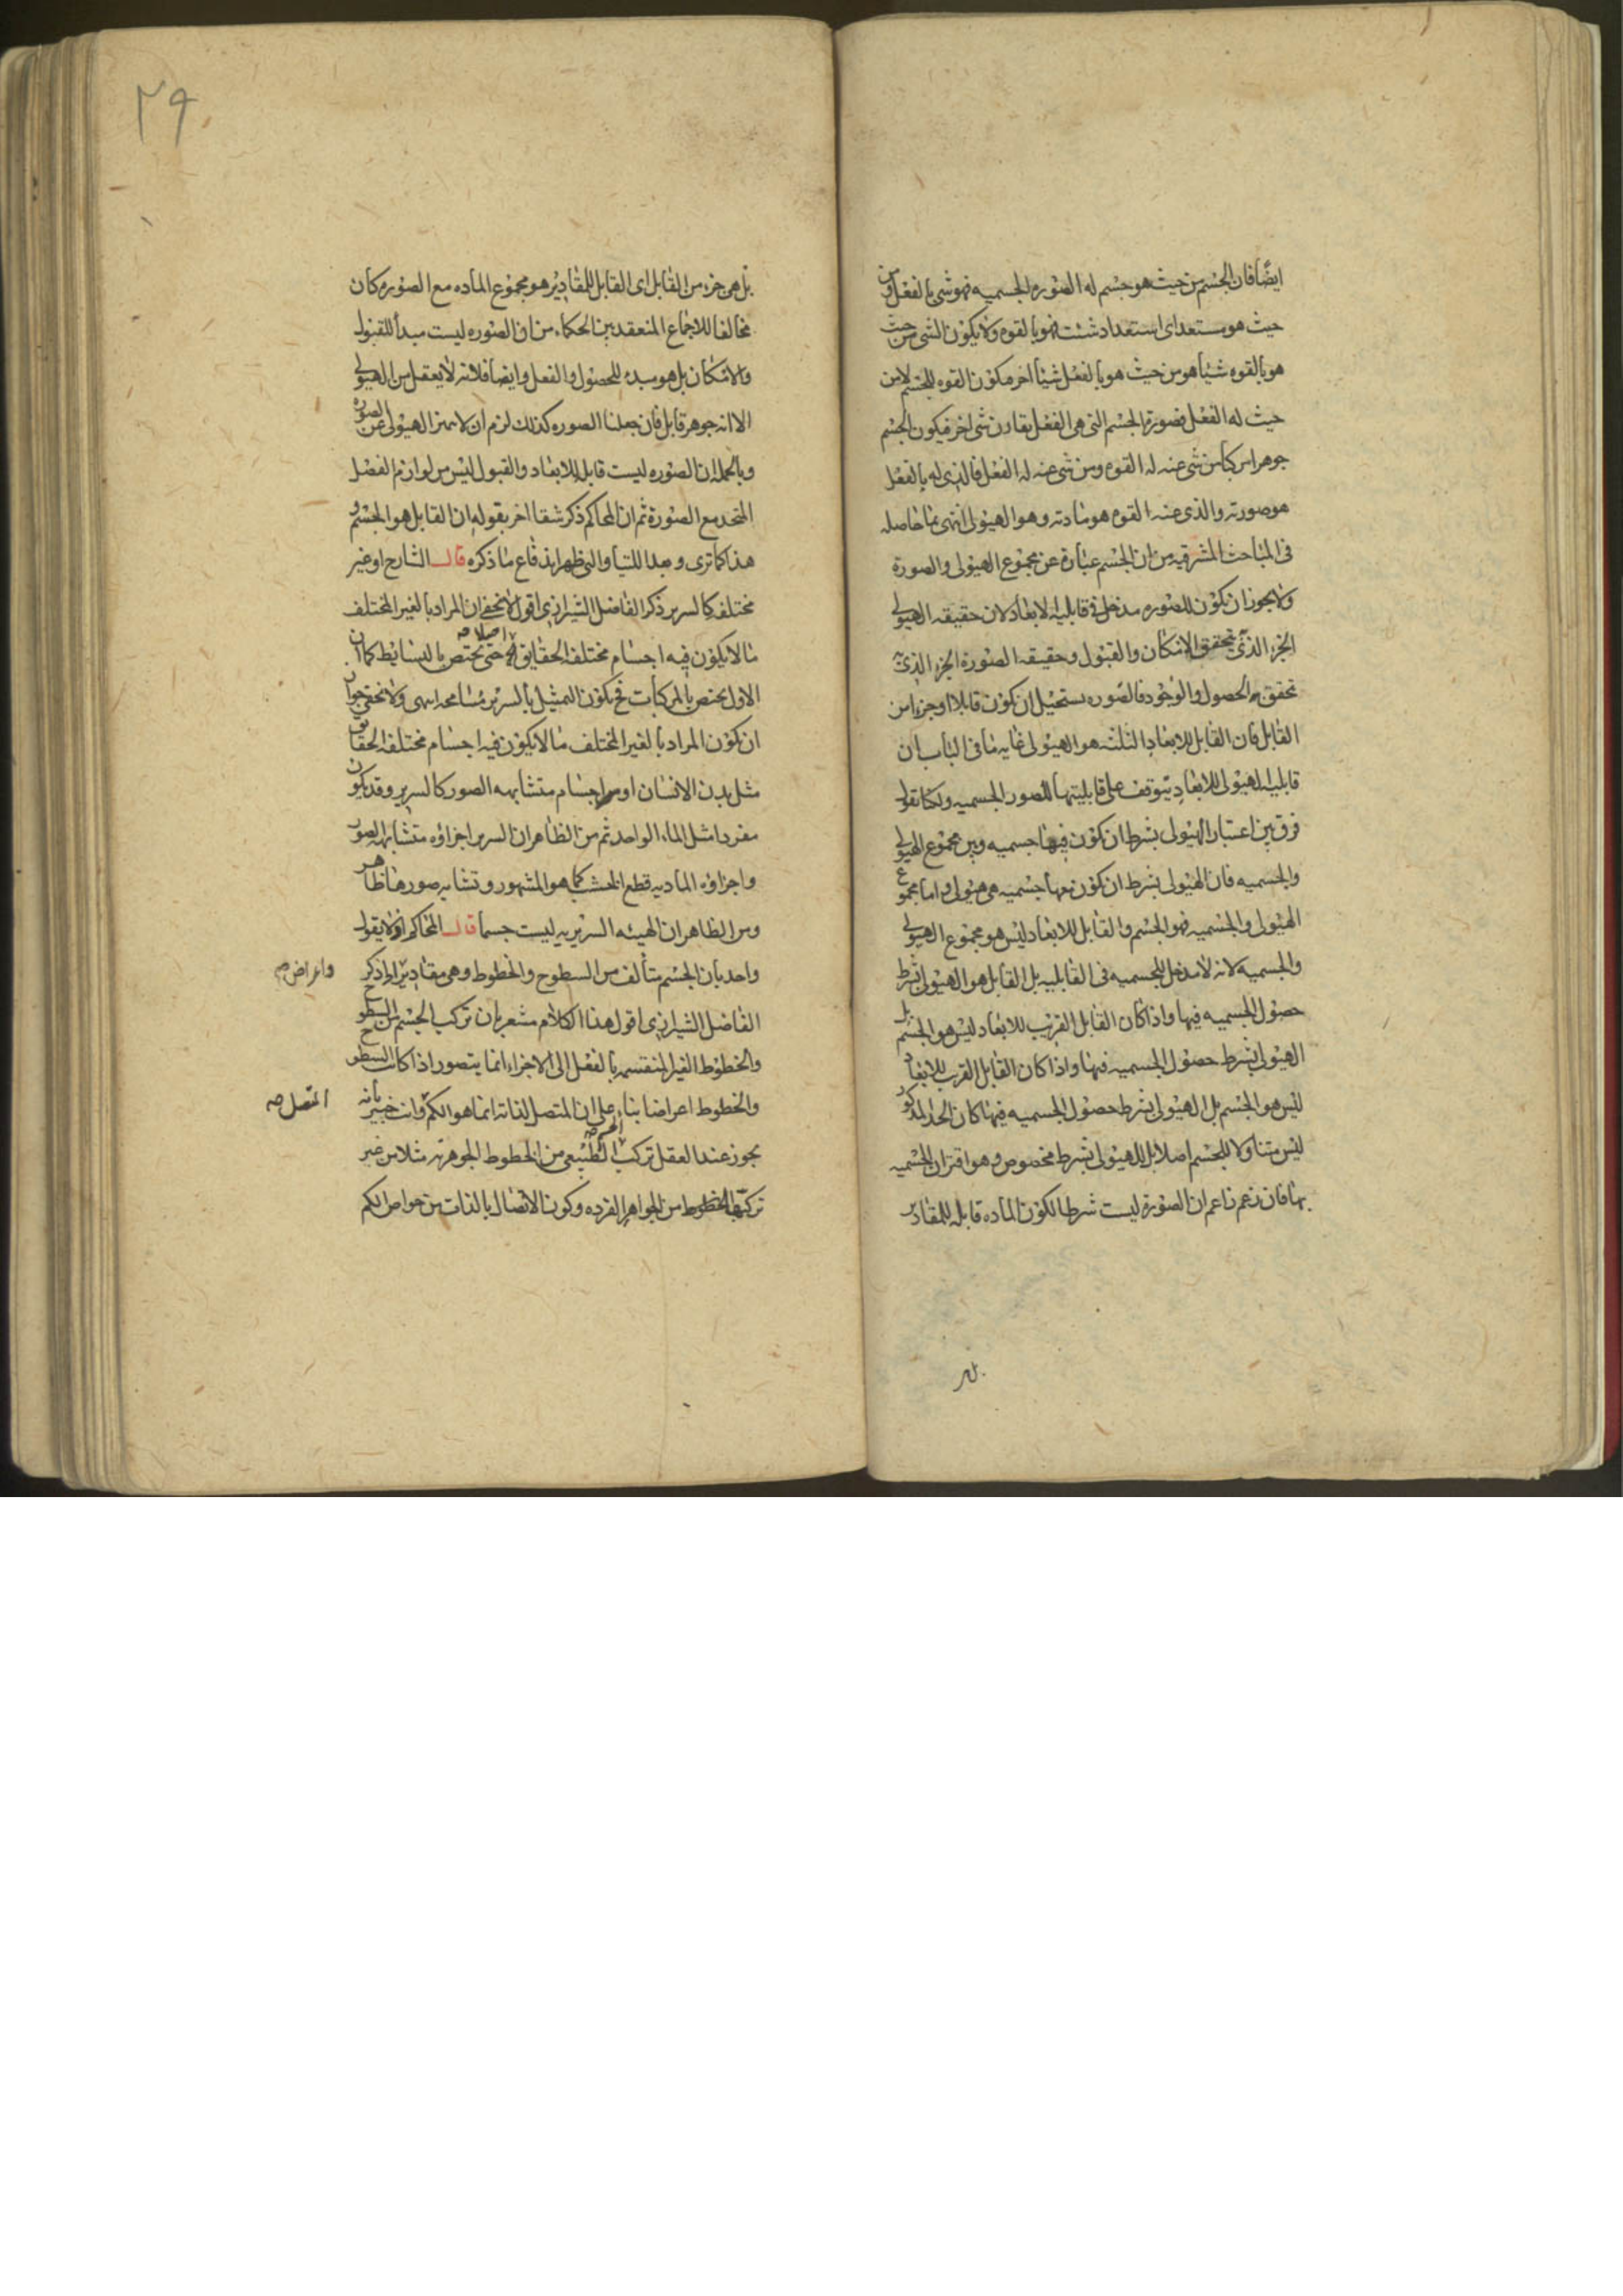 ايضا فان الجسم من حيث هو جسم له الصوره الجسميه فهو شى بالفعل ومن
حيث هو مستعد اى استعداد شئت فهو بالقوه ولا يكون الشى من حيث
هو بالقوه شيأ هو من حيث هو بالفعل شيأ اخر فيكون القوه للجسم لا من
حيث له الفعل فصورة الجسم التى هى الفعل يقارن شى اخر فيكون الجسم
جوهرا مركبا من شى عنه له القوه ومن شى عنه له الفعل فالذى له بالفعل
هو صورته والذى عنه القوه هو مادته وهو الهيولى انتهى بما حاصله
فى المباحث المشرقيه من ان الجسم عبارة عن مجموع الهيولى والصورة
ولا يجوز ان يكون للصوره مدخل فى قابليه الابعاد لان حقيقه الهيولى
الجزء الذى به تحقق الامكان والقبول وحقيقه الصورة الجزء الذى به
تحقق الحصول والوجود فالصوره يستحيل ان يكون قابلا او جزءا من
القابل فان القابل للابعاد الثلثه هو الهيولى غايه ما فى الباب ان
قابليه الهيولى للابعاد يتوقف على قابليتها للصور الجسميه ولكنا نقول
فرق بين اعتبار الهيولى بشرط ان يكون فيها جسميه وبين مجموع الهيولى
والجسميه فان الهيولى بشرط ان يكون معها جسميه هى هيولى واما مجموع
الهيولى والجسميه فهو الجسم والقابل للابعاد ليس هو مجموع الهيولى
والجسميه لانه لا مدخل للجسميه فى القابليه بل القابل هو الهيولى بشرط
حصول الجسميه فيها واذا كان القابل القريب للابعاد ليس هو الجسم بل
الهيولى بشرط حصول الجسميه فيها واذا كان القابل القريب للابعاد
ليس هو الجسم بل الهيولى بشرط حصول الجسميه فيها كان الحد المذكور
ليس متناولا للجسم اصلا بل للهيولى بشرط مخصوص وهو اقتران الجسميه
بها فان زعم زاعم ان الصورة ليست شرطا لكون الماده قابله للمقادير
بل
٢٩
بل هى جزء من القابل اى القابل للمقادير هو مجموع الماده مع الصوره كان
مخالفا للاجماع المنعقد بين الحكماء من ان الصوره ليست مبدأ للقبول
والامكان بل هو مبدء للحصول والفعل وايضا فلانه لا يعقل من الهيولى
الا انه جوهر قابل فان جعلنا الصوره كذلك لزم ان لا يتميز الهيولى عن الصوره
وبالجمله ان الصوره ليست قابله للابعاد والقبول ليس من لوازم الفصل
المتحد مع الصورة ثم ان المحاكم ذكر شقا اخر بقوله ان القابل هو الجسم و
هذا كما ترى وبهذا اللتيا والتى ظهر اندفاع ما ذكره قال الشارح او غير
مختلفه كالسرير ذكر الفاضل الشيرازى اقول لا يخفى ان المراد بالغير المختلف
ما لا يكون فيه اجسام مختلفه الحقايق اصلا صح حتى يختص بالبسائط كما ان
الاول يختص بالمركبات فح يكون التمثيل بالسرير مسامحه انتهى ولا يخفى جواز
ان يكون المراد بالغير المختلف ما لا يكون فيه اجسام مختلفه الحقايق
مثل بدن الانسان او من اجسام متشابهه الصور كالسرير وقد يكون
مفردا مثل الماء الواحد ثم من الظاهر ان السرير اجزاؤه متشابهه الصور
واجزاؤه الماديه قطع الخشب كما هو المشهور وتشابه صورها ظاهر
ومن الظاهر ان الهيئه السريريه ليست جسما قال المحاكم اذ لا يقول
واحد بان الجسم متألف من السطوح والخطوط وهى مقادير واعراض صح ذكر
الفاضل الشيرازى اقول هذا الكلام مشعر بان تركب الجسم من السطوح
والخطوط الغير المنقسمه بالفعل الى الاجزاء انما يتصور اذا كانت السطوح
والخطوط اعراضا بناء على ان المتصل لذاته انما هو الكم وانت خبير بانه
يجوز عند العقل تركب الجسم صح الطبيعى من الخطوط الجوهريه المتصل صح مثلا من غير
تركب الخطوط من الجواهر الفرده وكون الاتصال بالذات من خواص الكم